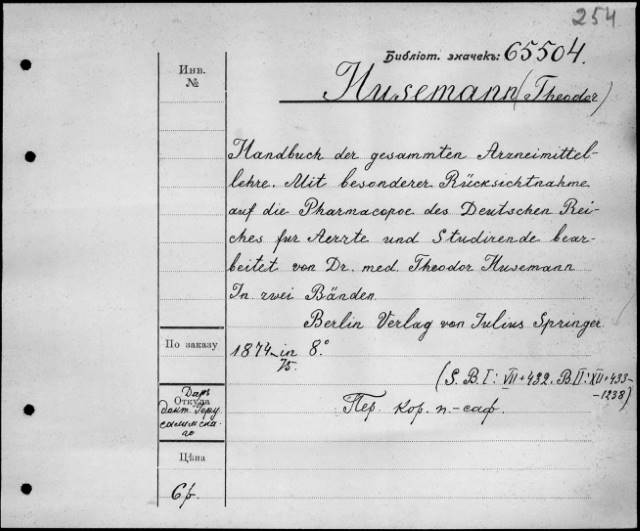 254
Библіот. значекъ: 65504.
Инв.
№
Husemann (Theodor)
Handbuch der gesammten Arzneimittel-
lehre. Mit besonderer Rücksichtnahme
auf die Pharmacopoe des Deutschen Rei-
ches fur Aerzte und Studirende bear-
beitet von Dr. med. Theodor Husemann
In zwei Bänden.
Berlin Verlag von Julius Springer
По заказу
1874 in 8°
75.
(S. B. I: VII + 432. B. II: XII + 433-
-1238)
Даръ
Откуда
докт. Геру
салимска-
го
Пер. кор. п.-саф.
Цѣна
6 р.